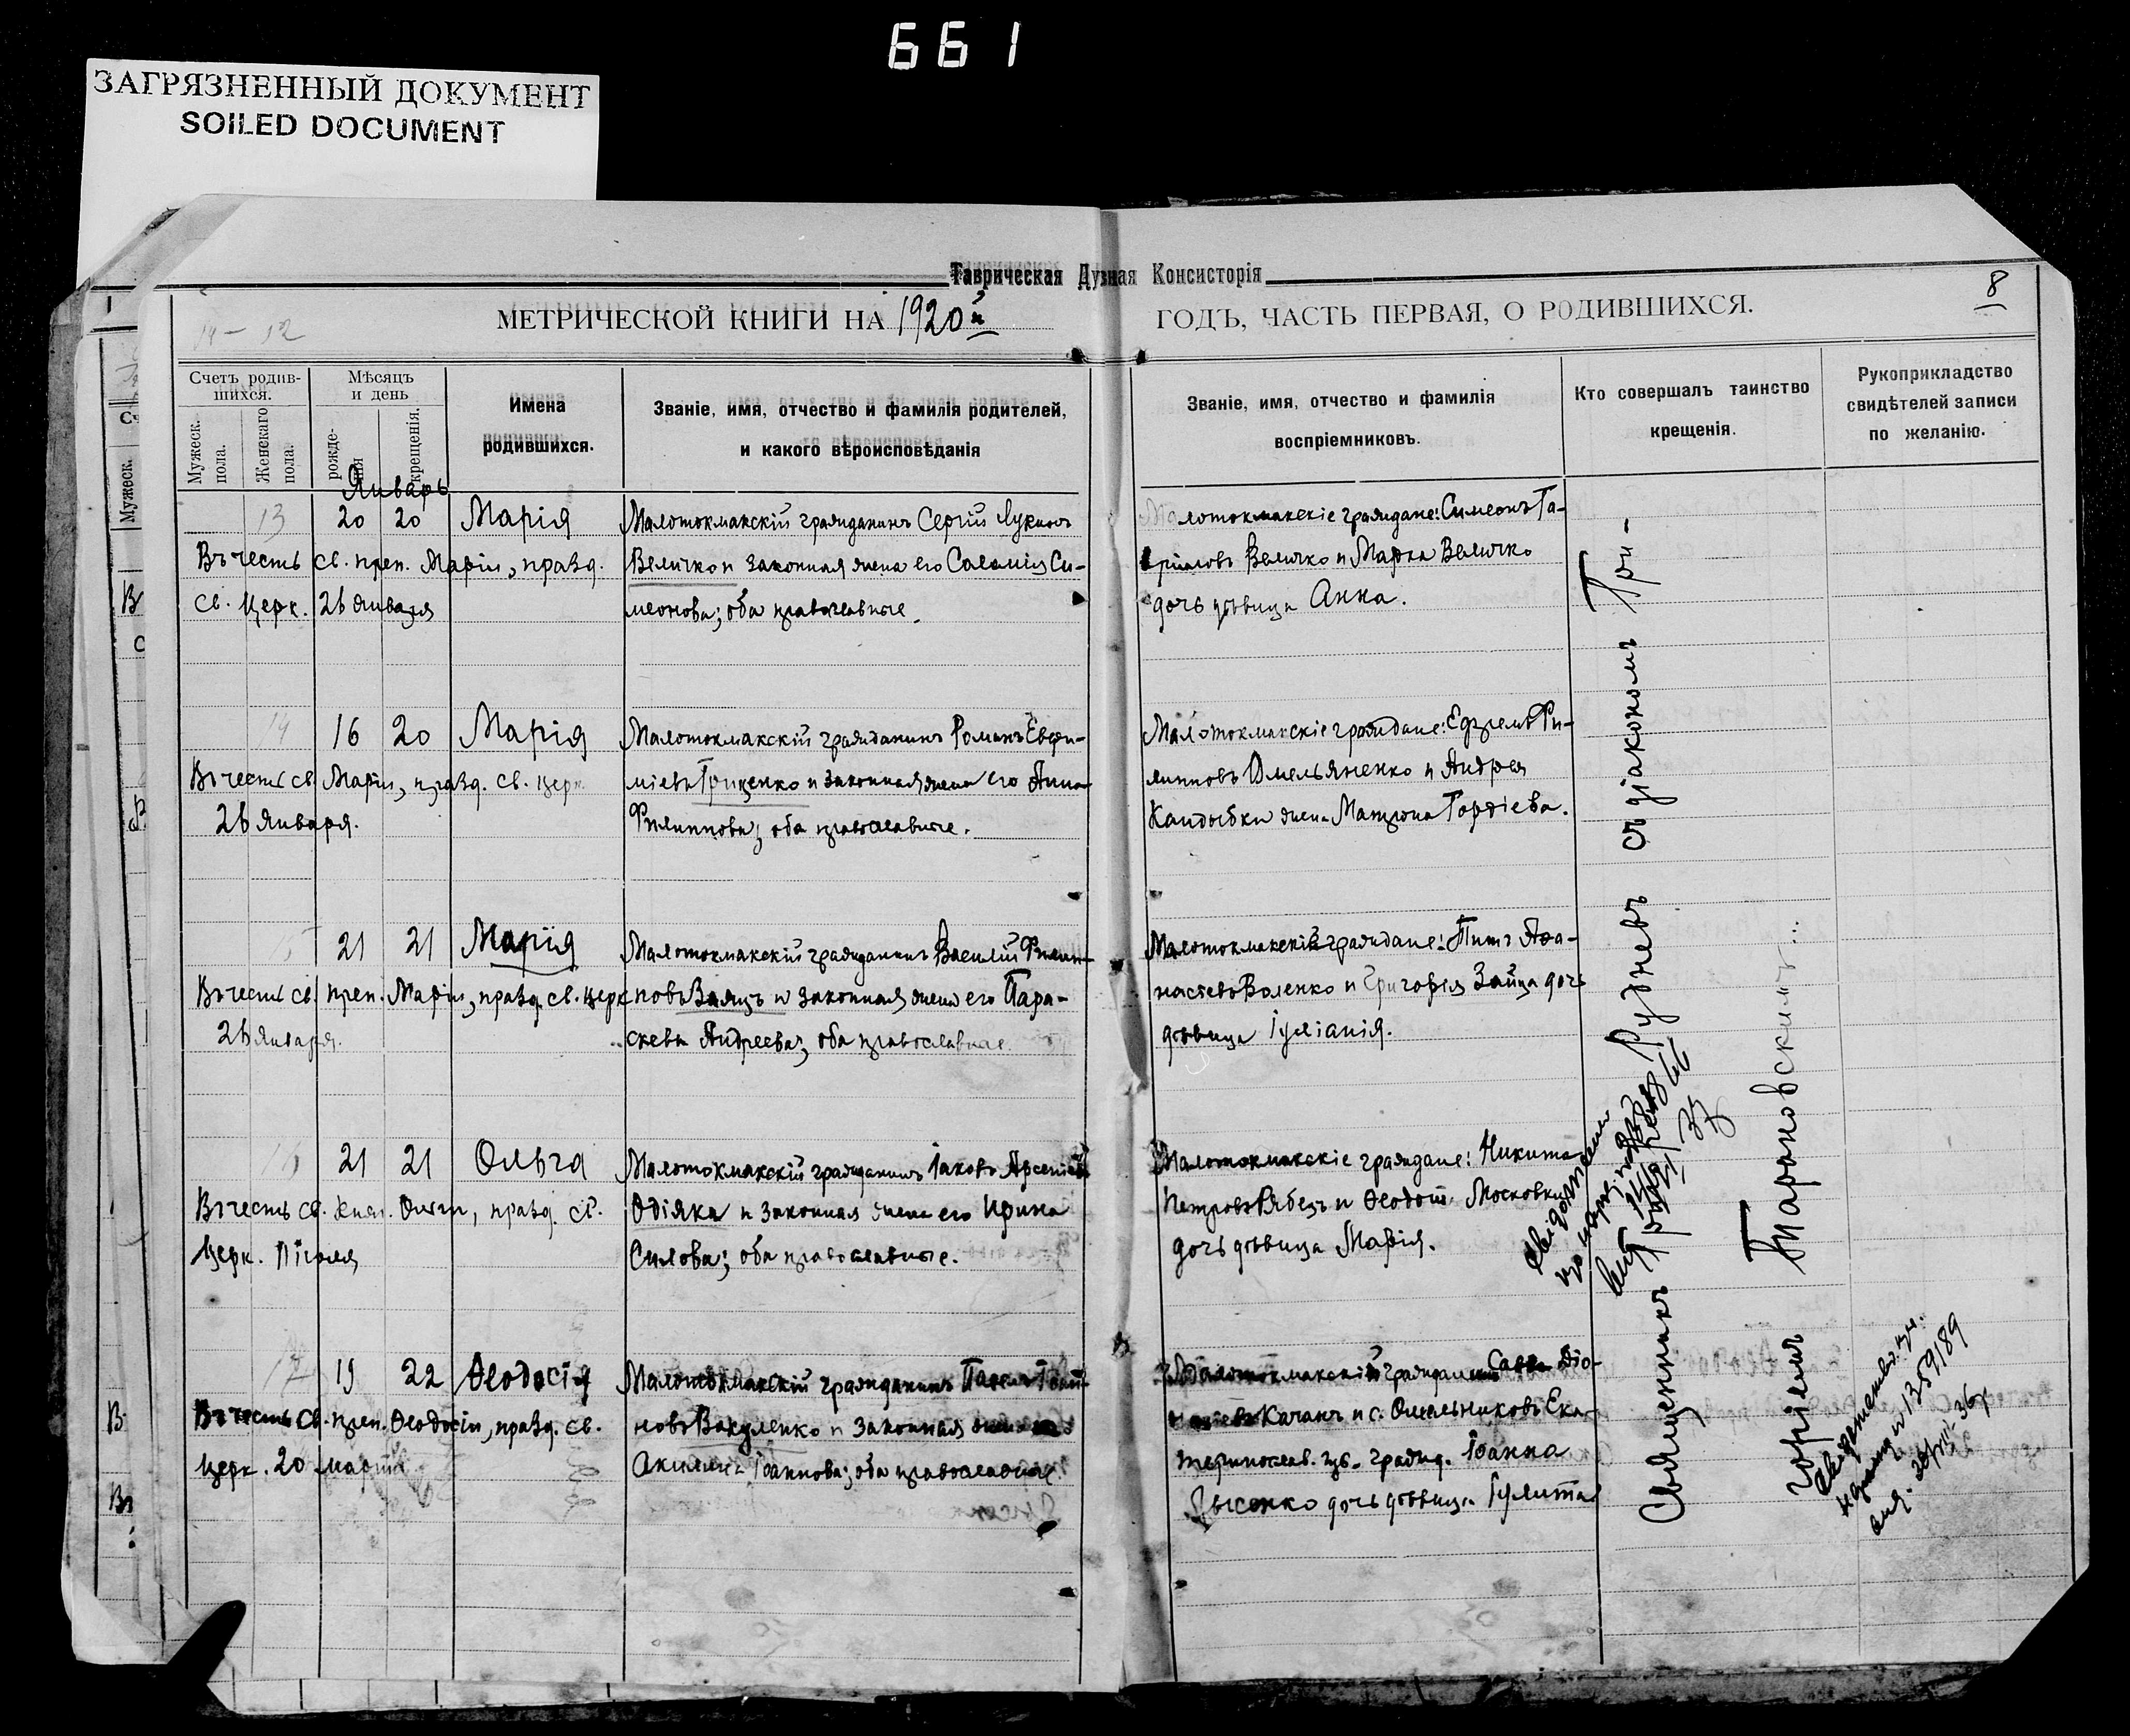 661
ЗАГРЯЗНЕННЫЙ ДОКУМЕНТ
SOILED DOCUMENT
Таврическая Духная Консисторія
8
14 - 12
МЕТРИЧЕСКОЙ КНИГИ НА 1920й ГОДЪ, ЧАСТЬ ПЕРВАЯ, О РОДИВШИХСЯ.
Счетъ родив-
шихся.
Мужеск. пола.
Женскаго пола.
Мѣсяцъ
и день
рожде-
нія
крещенія.
Имена
родившихся.
Званіе, имя, отчество и фамилія родителей,
и какого вѣроисповѣданія
Званіе, имя, отчество и фамилія
воспріемниковъ.
Кто совершалъ таинство
крещенія.
Рукоприкладство
свидѣтелей записи
по желанію.
Январь
13 20 20 Марія
Въ честь св. преп. Маріи, празд.
св. Церк. 26 января
Малотокмакскій гражданинъ Сергій Лукинъ
Величко и законная жена его Саломія Си-
меонова; оба православные.
Малотокмакскіе граждане: Симеонъ Га-
вріиловъ Величко и Марка Величко
дочь дѣвица Анна.
14 16 20 Марія
Въ честь св. Маріи, празд. св. церк.
26 Января.
Малотокмакскій гражданинъ Романъ Евфи-
міевъ Гриценко и законная жена его Анна
Филиппова; оба православные.
Малотокмакскіе граждане: Ефремъ Фи-
липповъ Омельяненко и Андрея
Кандыбки жена Матрона Гордіева.
15 21 21 Марія
Въ честь св. преп. Маріи, празд. св. церк
26 января.
Малотокмакскій гражданинъ Василій Филип-
повъ Заяцъ и законная жена его Пара-
скева Андреева; оба православные.
Малотокмакскіе граждане: Титъ Афа-
насіевъ Воленко и Григорія Зайца дочь
дѣвица Іуліанія.
16 21 21 Ольга
Въ честь св. княг. Ольги, празд. св.
Церк. 11 іюля
Малотокмакскій гражданинъ Іаковъ Арсеніевъ
Одіяка и законная жена его Ирина
Силова; оба православные.
Малотокмакскіе граждане: Никита
Петровъ Рябецъ и Ѳеодот. Московки
дочь дѣвица Марія.
17 19 22 Ѳеодосія
Въ честь св. преп. Ѳеодосіи, празд. св.
Церк. 20 марта
Малотокмакскій гражданинъ Павелъ Іоан-
новъ Вакуленко и законная жена
Акилина Іоаннова; оба православные.
Малотокмакскій гражданинъ Савва Діо-
нисіевъ Качанъ и с. Омельниковъ Ека-
теринослав. губ. гражд. Іоанна
Лысенко дочь дѣвица Іулита
Священникъ Григорій Рудневъ съ діакономъ Гри-
горіемъ Тарановскимъ...